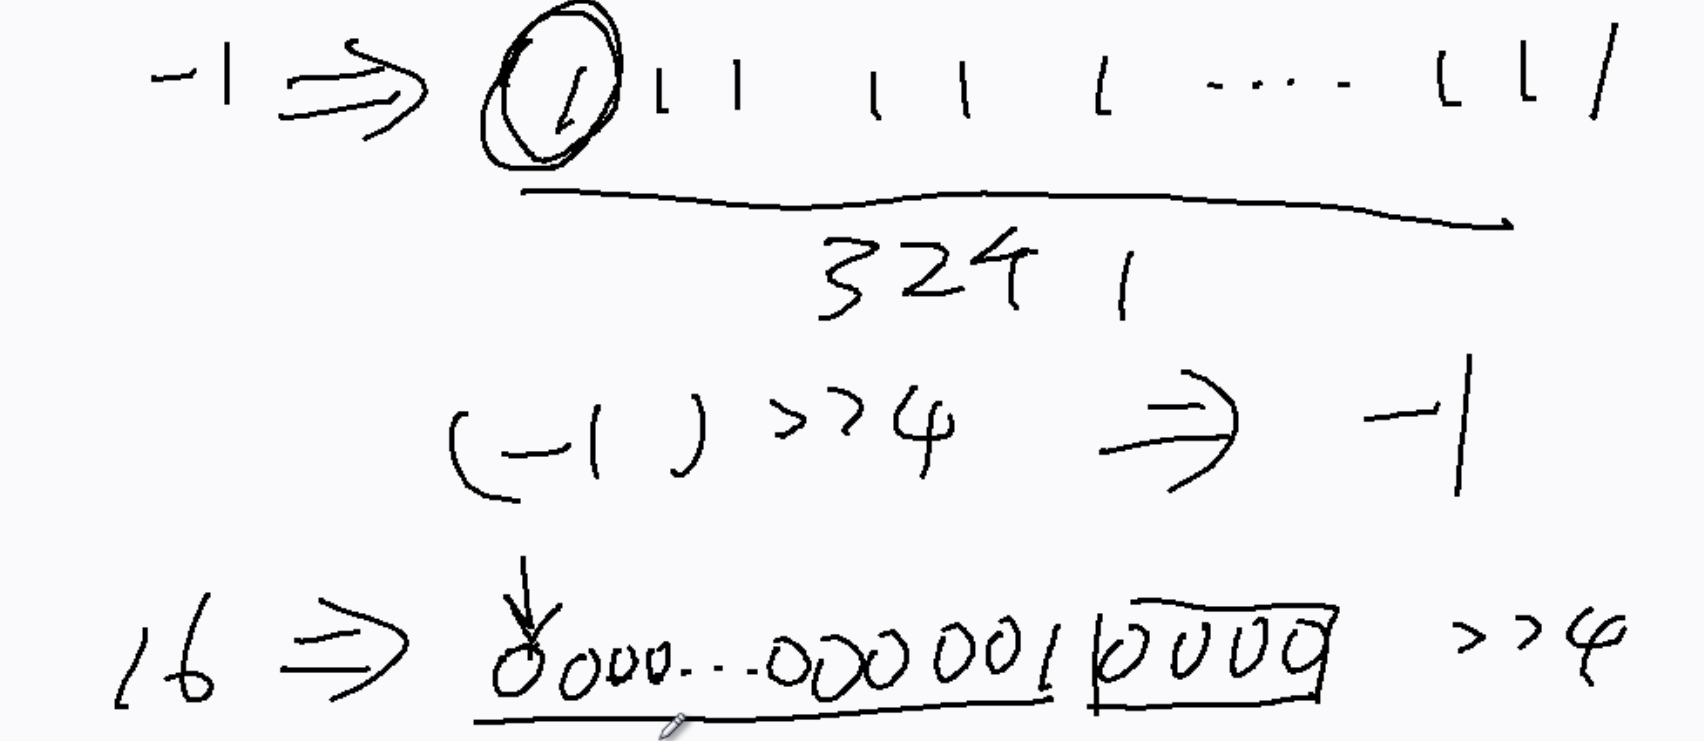 -1 ⇒ 1 1 1 1 1 1 ..... 1 1 1
32个 1
(-1) >>4 ⇒ -1
16 ⇒ 0000...0000010000 >>4